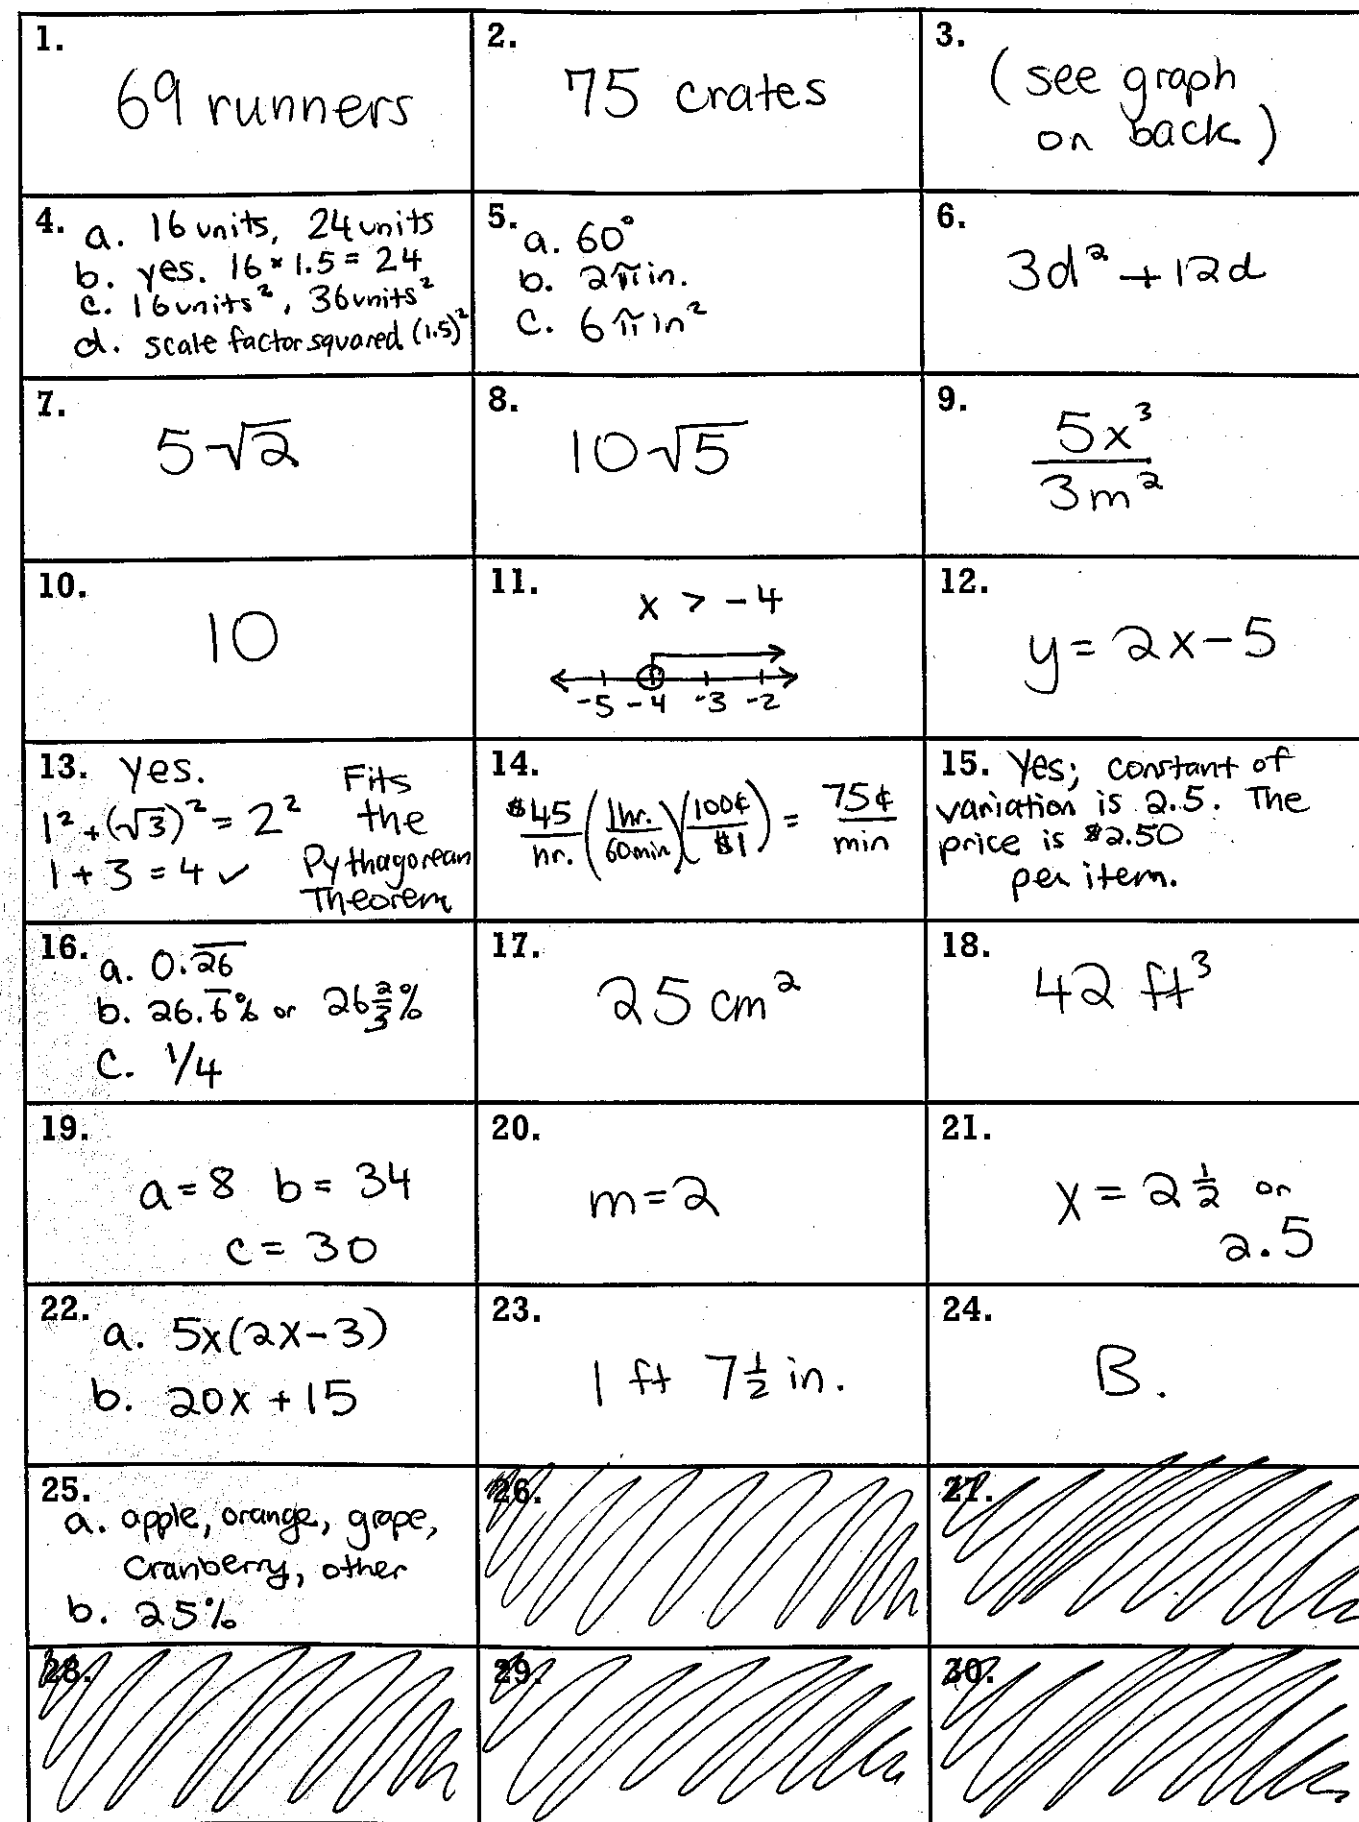 1.
69 runners
2.
75 crates
3.
(see graph
on back)
4. a. 16 units, 24 units
b. yes. 16 * 1.5 = 24
c. 16 units², 36 units²
d. scale factor squared (1.5)²
5. a. 60°
b. 2π in.
c. 6π in²
6.
3d² + 12d
7.
5√2
8.
10√5
9.
5x³
3m²
10.
10
11.
x > -4
-5 -4 -3 -2
12.
y = 2x - 5
13. yes. Fits
1² + (√3)² = 2² the
1 + 3 = 4 ✓ Pythagorean
Theorem
14.
$45/hr. (1hr./60min)(100¢/$1) = 75¢/min
15. Yes; constant of
variation is 2.5. The
price is $2.50
per item.
16. a. 0.2̅6̅
b. 26.6̅% or 26⅔%
c. 1/4
17.
25 cm²
18.
42 ft³
19.
a = 8 b = 34
c = 30
20.
m = 2
21.
x = 2½ or
2.5
22. a. 5x(2x-3)
b. 20x + 15
23.
1 ft 7½ in.
24.
B.
25.
a. apple, orange, grape,
cranberry, other
b. 25%
26.
27.
28.
29.
30.